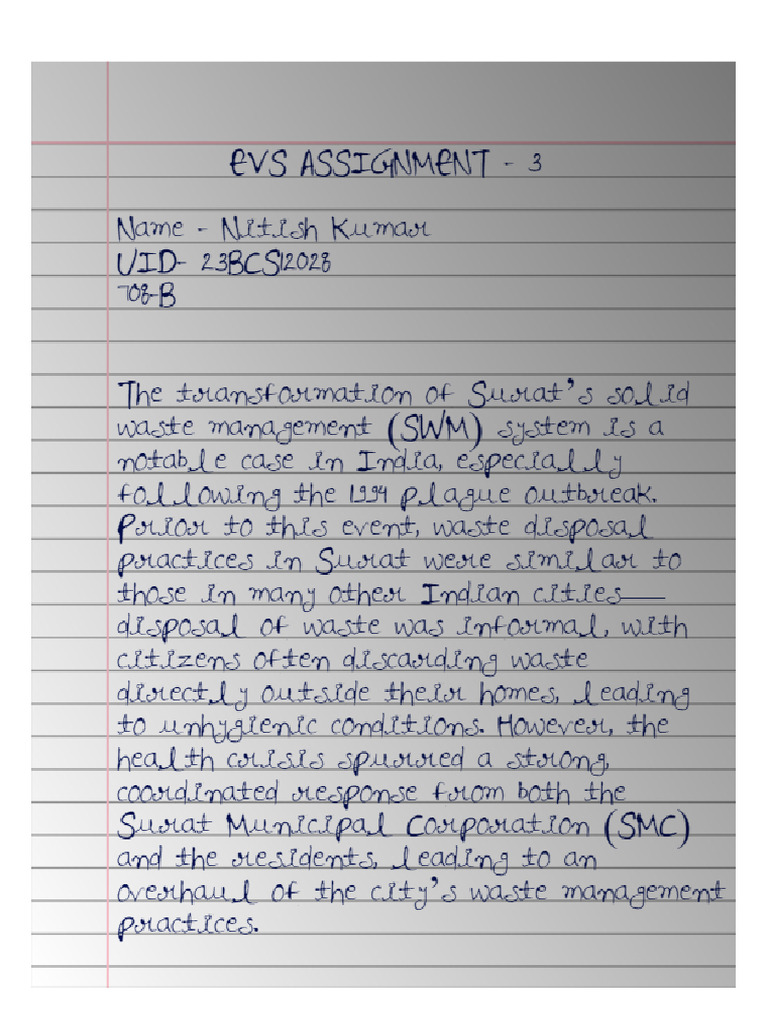 EVS ASSIGNMENT - 3
Name - Nitish Kumar
UID- 23BCS12028
708-B
The transformation of Surat's solid
waste management (SWM) system is a
notable case in India, especially
following the 1994 plague outbreak.
Prior to this event, waste disposal
practices in Surat were similar to
those in many other Indian cities—
disposal of waste was informal, with
citizens often discarding waste
directly outside their homes, leading
to unhygienic conditions. However, the
health crisis spurred a strong,
coordinated response from both the
Surat Municipal Corporation (SMC)
and the residents, leading to an
overhaul of the city's waste management
practices.